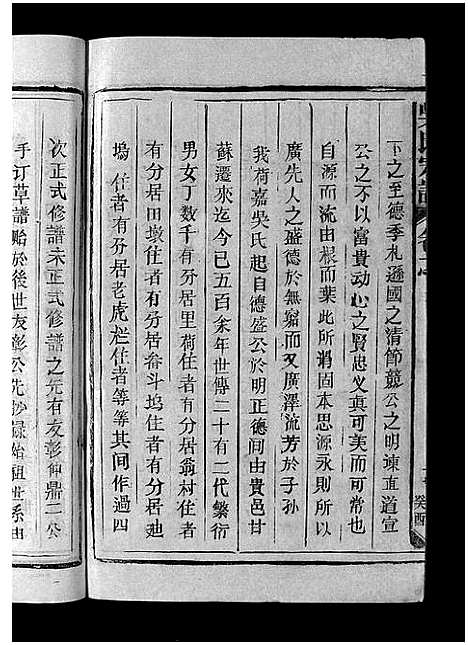 吳氏宗譜
癸酉
下之至德季札遜國之清節競公之明諫直道宣
公之不以富貴动心之賢忠义真可美而可常也
自源而流由根而葉此所谓固本思源永则所以
廣先人之盛德於無窮而又廣澤流芳於子孫
我荷嘉吳氏起自德盛公於明正德间由貴邑甘
蘇遷來迄今已五百余年世傳二十有二代繁衍
男女丁数千有分居里荷住者有分居翁村住者
有分居田墩住者有分居畚斗塢住者有分居迪
塢住者有分居老虎栏住者等等其间作過四
次正式修譜未正式修譜之先有友彰仲鼎二公
手订草譜貽於後世友彰公先抄録始祖世系由